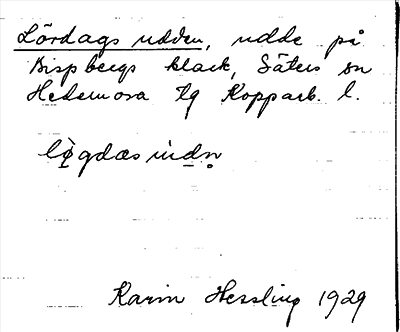 Lördags udden, udde på
Bispbergs klack, Säters sn
Hedemora tg Kopparb. l.
Karin Hessling 1929